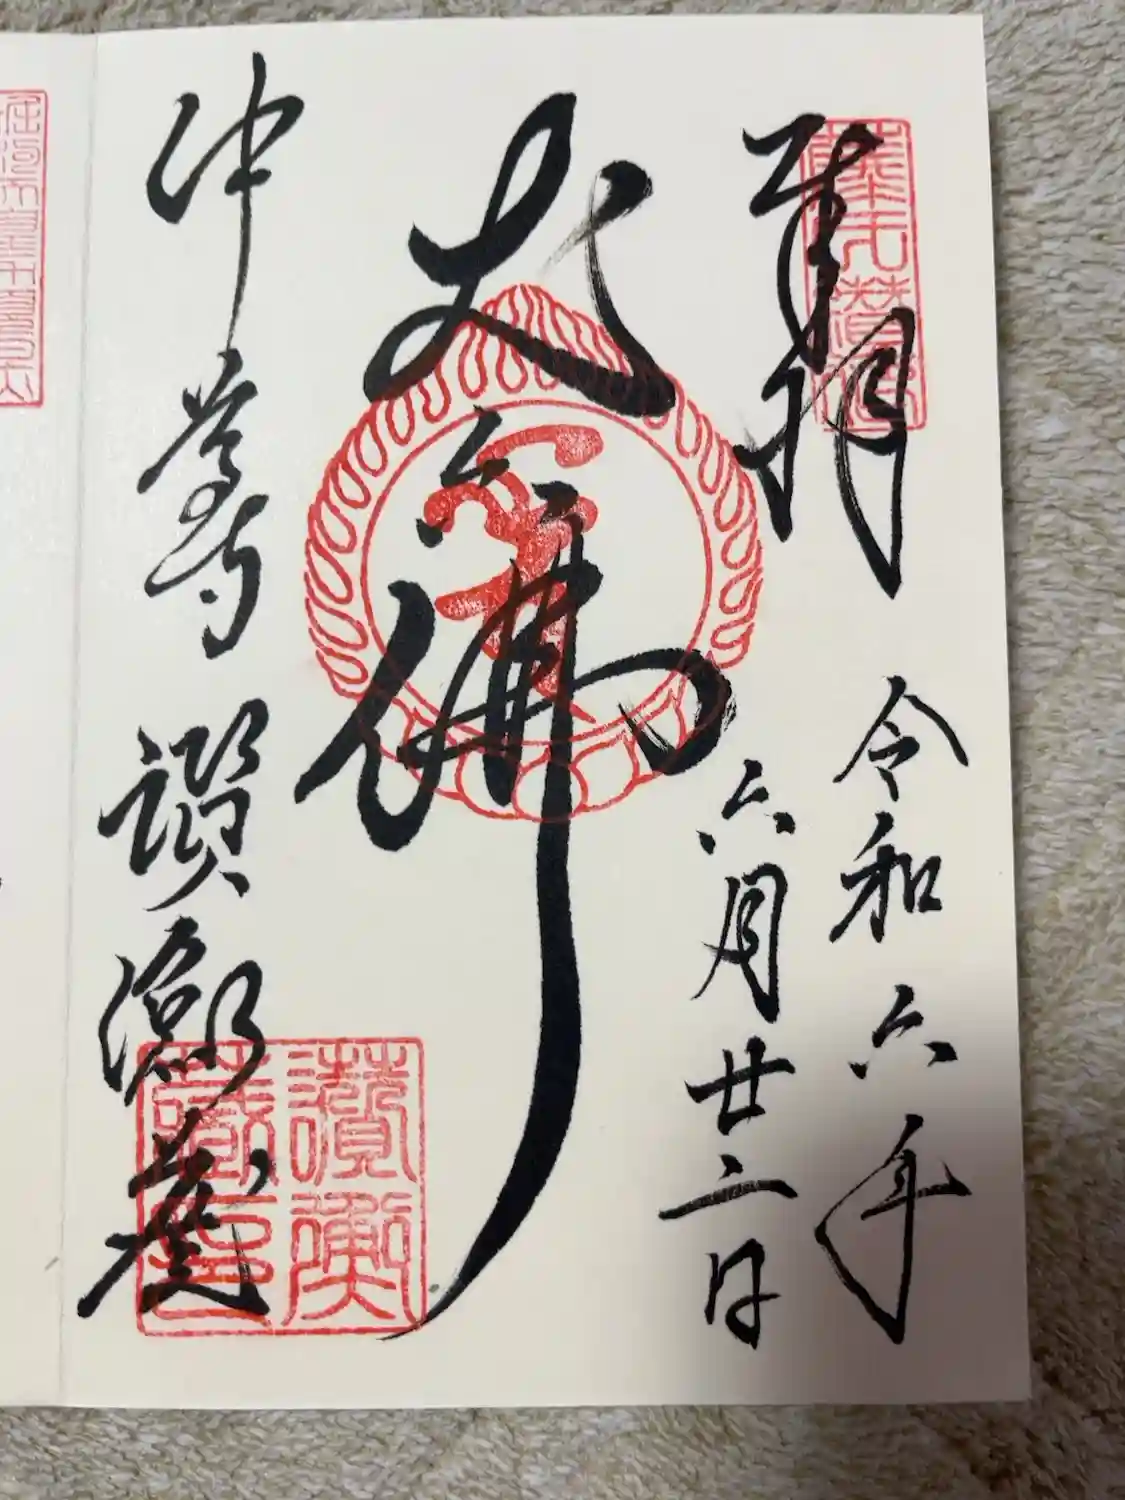 奉拝
令和六年
六月廿二日
丈六佛
中尊寺 讃衡蔵
讃衡蔵印